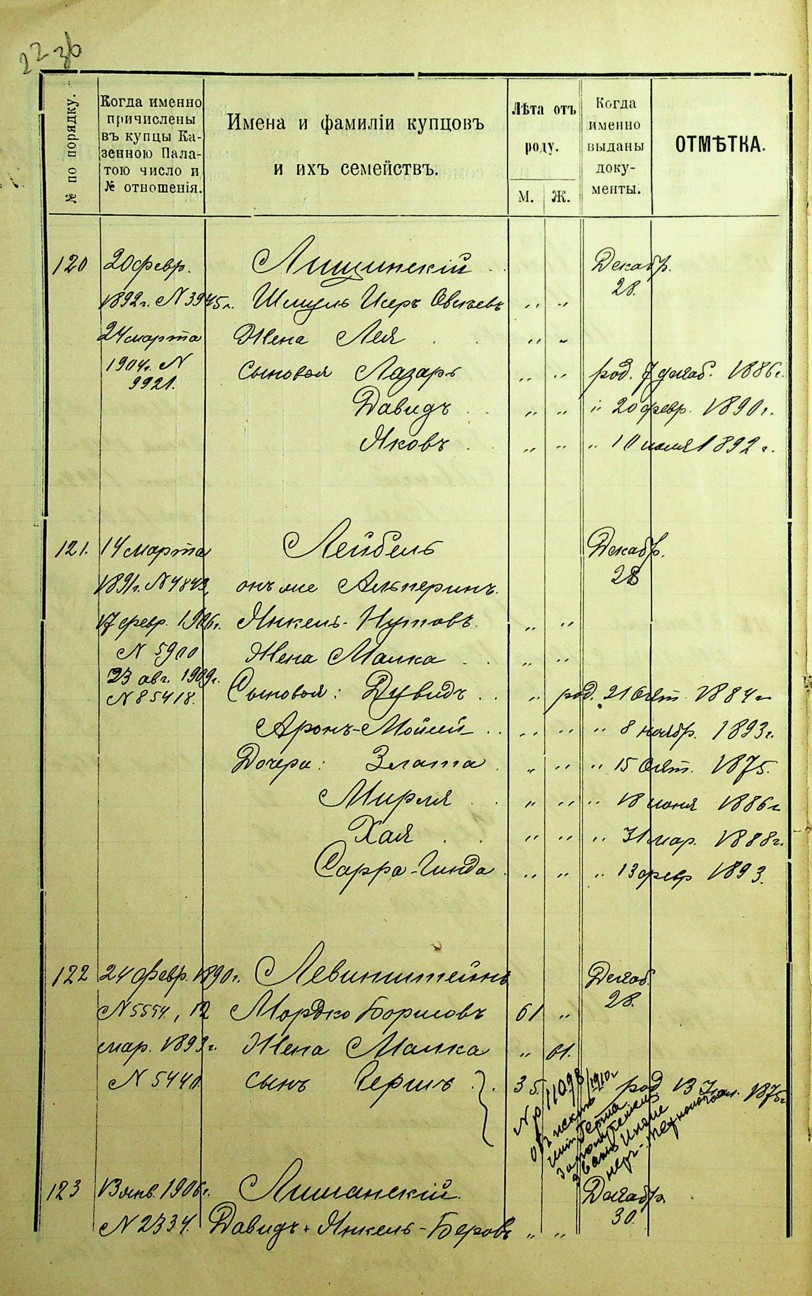 22 зб
№ по порядку.
Когда именно причислены въ купцы Казенною Палатою число и № отношенія.
Имена и фамиліи купцовъ и ихъ семействъ.
Лѣта отъ роду.
М. Ж.
Когда именно выданы документы.
ОТМѢТКА.
120 20 февр. Лищинскій Декабр.
1892 г. N 3945 г. Шмуль Исеръ Овсѣевъ „ „ 28.
24 марта Жена Лея „ „
1904 г. N сыновья Лазарь „ „ род. 7 декаб. 1886 г.
9921. Давидъ „ „ „ 20 февр. 1890 г.
Яковъ „ „ „ 10 июля 1892 г.
121. 14 марта Лейбель Декабр.
1891 г. N 4843, онъ же Альперинъ. 28
17 февр. 1906 г. Янкель-Нутовъ „ „
N 5900 Жена Малка „ „
23 авг. 1909 г.
N 85418. Сыновья: Дувидъ „ род. 21 Окт. 1884 г
Аронъ-Мойсей „ „ „ 8 ноябр. 1893 г.
Дочери: Злата „ „ „ 15 Окт. 1875.
Мирля „ „ „ 18 июня 1886 г
Хая „ „ „ 31 мар. 1888 г.
Сарра-Гинда „ „ „ 13 февр 1893.
122 24 февр. 1890 г. Левинштейнъ Декаб.
N 5554, 12 Мордко Борисовъ 61 „ 28.
мар. 1893 г. Жена Малка „ 61.
N 5440 сынъ Гершъ 35 род 13 1875 г
N р 11098 / 1910 г
123 13 янв. 1906 г. Лиманскій. Декабр.
N 2334. Давидъ-Янкель-Беровъ „ „ 30.